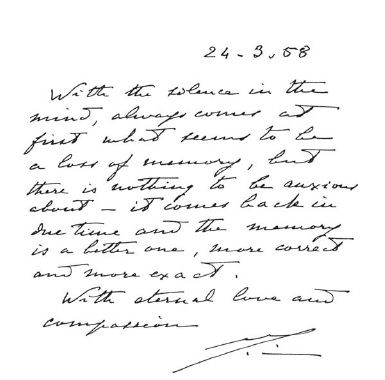 24-3.58
With the silence in the
mind, always comes at
first what seems to be
a loss of memory, but
there is nothing to be anxious
about – it comes back in
due time and the memory
is a better one, more correct
and more exact.
With eternal love and
compassion